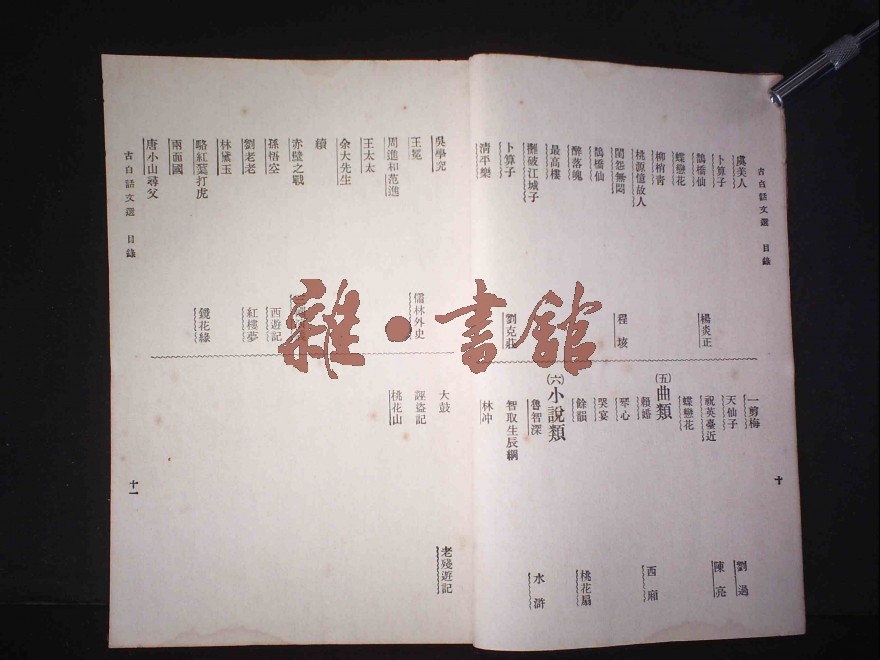 古白話文選 目錄
虞美人
卜算子
鵲橋仙 楊炎正
蝶戀花
柳梢青
桃源憶故人
閨怨無悶 程垓
鵲橋仙
醉落魄
最高樓
攤破江城子
卜算子 劉克莊
清平樂
一剪梅
天仙子 劉過
祝英臺近 陳亮
蝶戀花
(五)曲類
賴婚 西廂
琴心
哭宴
餘韻 桃花扇
(六)小說類
魯智深 水滸
智取生辰綱
林冲
十
吳學究
王冕 儒林外史
周進和范進
王太太
余大先生
續
赤壁之戰
孫悟空 西遊記
劉老老 紅樓夢
林黛玉
駱紅蕖打虎 鏡花緣
兩面國
唐小山尋父
大鼓 老殘遊記
誣盜記
桃花山
古白話文選 目錄
十一
雜·書館